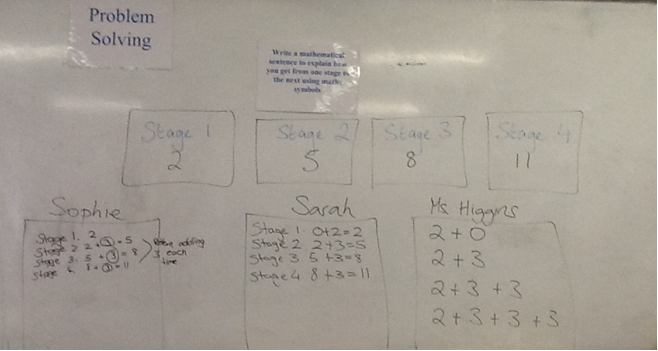 Problem
Solving
Write a mathematical
sentence to explain how
you get from one stage to
the next using maths
symbols
Stage 1
2
Stage 2
5
Stage 3
8
Stage 4
11
Sophie
Stage 1. 2
Stage 2 2+3=5
Stage 3. 5 +3=8
Stage 8+3=11
adding
3 each
time
Sarah
Stage 1. 0+2=2
Stage 2 2+3=5
Stage 3 5+3=8
Stage 4 8+3=11
Ms Higgins
2+0
2+3
2+3+3
2+3+3+3